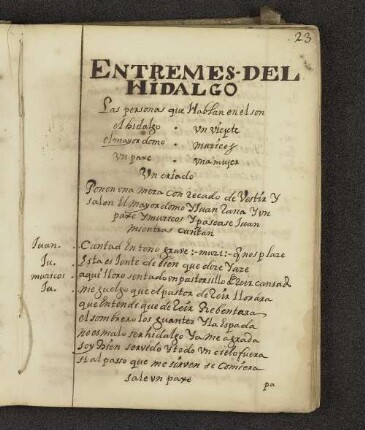 23
ENTREMES-DEL
HIDALGO
Las personas que Hablan en el son
el hidalgo . vn viejete
el mayordomo . musicos
vn paxe . vna mujer
Vn criado
Ponen vna mesa con recado de Vestir Y
salen El mayordomo Y Juan Rana Y vn
paxe Y musicos Y pasease Juan
mientras cantan
Juan. Cantad en tono graue :- musi :- q nos plaze
Ju. Esta es Jente de bien que dize Yaze
musicos aqui lloro sentado vn pastorsillo
Ja. me guelgo que el pastor de llorara
que entiende que de Reir Rebentara
el sombrero los guantes Y la espada
no es malo ser hidalgo Ya me agrada
soy bien seruido Y todo vn cielo fuera
si al passo que me sirven se comiera
sale vn paxe
pa